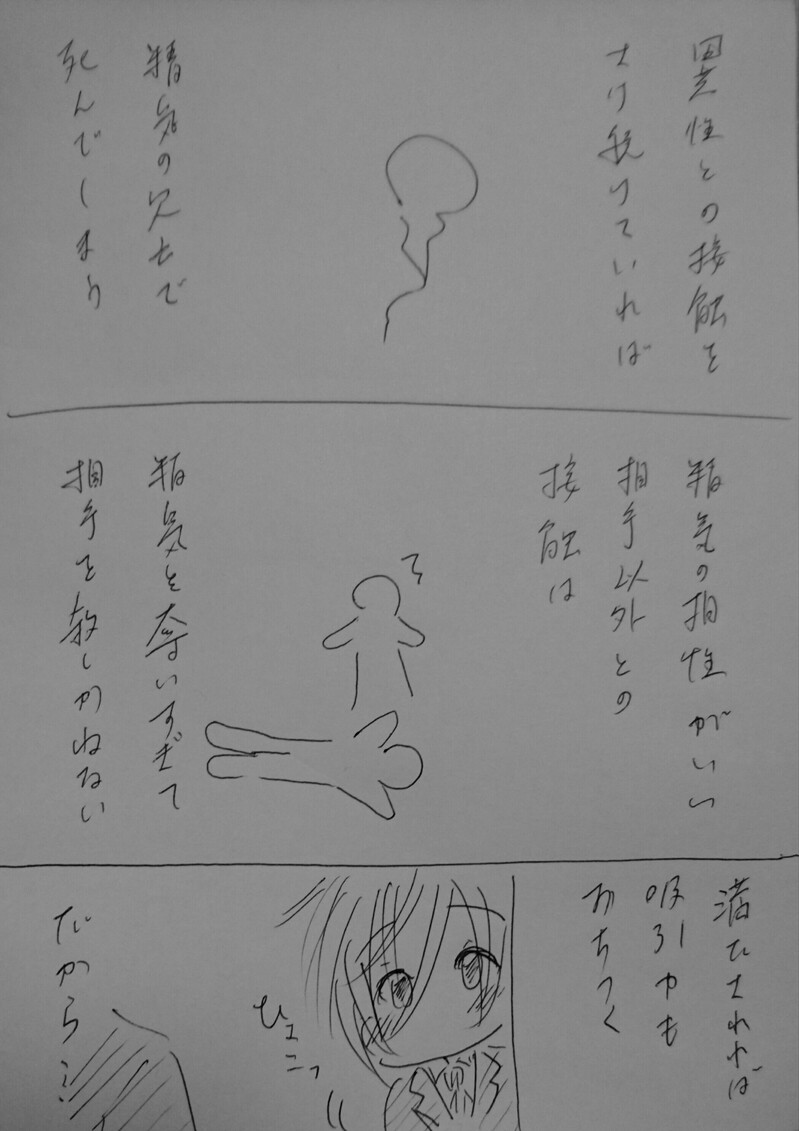 異性との接触を
さけ続けていれば
精気の欠乏で
死んでしまう
精気の相性がいい
相手以外との
接触は
精気を奪いすぎて
相手を殺しかねない
満たされれば
吸引力も
おちつく
ひょこっ
だから…